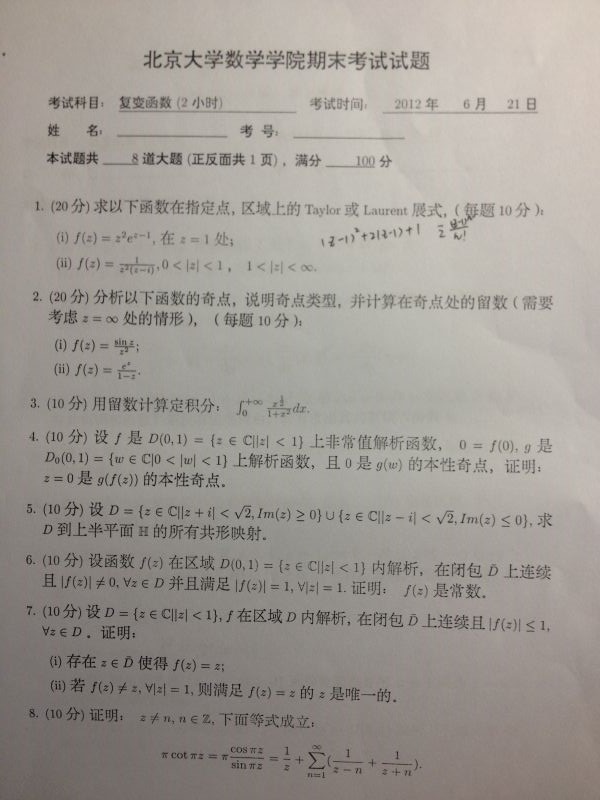 北京大学数学学院期末考试试题
考试科目: 复变函数 (2 小时) 考试时间: 2012 年 6 月 21 日
姓 名: 考 号:
本试题共 8 道大题 (正反面共 1 页), 满分 100 分
1. (20 分) 求以下函数在指定点, 区域上的 Taylor 或 Laurent 展式, (每题 10 分):
(i) f(z) = z²e^{z−1}, 在 z = 1 处; (z-1)²+2(z-1)+1
(ii) f(z) = \frac{1}{z²(z−i)}, 0 < |z| < 1, 1 < |z| < ∞.
2. (20 分) 分析以下函数的奇点, 说明奇点类型, 并计算在奇点处的留数 (需要
考虑 z = ∞ 处的情形), (每题 10 分):
(i) f(z) = \frac{sin z}{z²};
(ii) f(z) = \frac{e^z}{1−z}.
3. (10 分) 用留数计算定积分: ∫_0^{+∞} \frac{x^{\frac{1}{2}}}{1+x²}dx.
4. (10 分) 设 f 是 D(0,1) = {z ∈ ℂ||z| < 1} 上非常值解析函数, 0 = f(0), g 是
D₀(0,1) = {w ∈ ℂ|0 < |w| < 1} 上解析函数, 且 0 是 g(w) 的本性奇点, 证明:
z = 0 是 g(f(z)) 的本性奇点.
5. (10 分) 设 D = {z ∈ ℂ||z+i| < √2, Im(z) ≥ 0} ∪ {z ∈ ℂ||z−i| < √2, Im(z) ≤ 0}, 求
D 到上半平面 ℍ 的所有共形映射.
6. (10 分) 设函数 f(z) 在区域 D(0,1) = {z ∈ ℂ||z| < 1} 内解析, 在闭包 D̄ 上连续
且 |f(z)| ≠ 0, ∀z ∈ D 并且满足 |f(z)| = 1, ∀|z| = 1. 证明: f(z) 是常数.
7. (10 分) 设 D = {z ∈ ℂ||z| < 1}, f 在区域 D 内解析, 在闭包 D̄ 上连续且 |f(z)| ≤ 1,
∀z ∈ D. 证明:
(i) 存在 z ∈ D̄ 使得 f(z) = z;
(ii) 若 f(z) ≠ z, ∀|z| = 1, 则满足 f(z) = z 的 z 是唯一的.
8. (10 分) 证明: z ≠ n, n ∈ ℤ, 下面等式成立:
π cot πz = π\frac{cos πz}{sin πz} = \frac{1}{z} + ∑_{n=1}^{∞}(\frac{1}{z−n} + \frac{1}{z+n}).